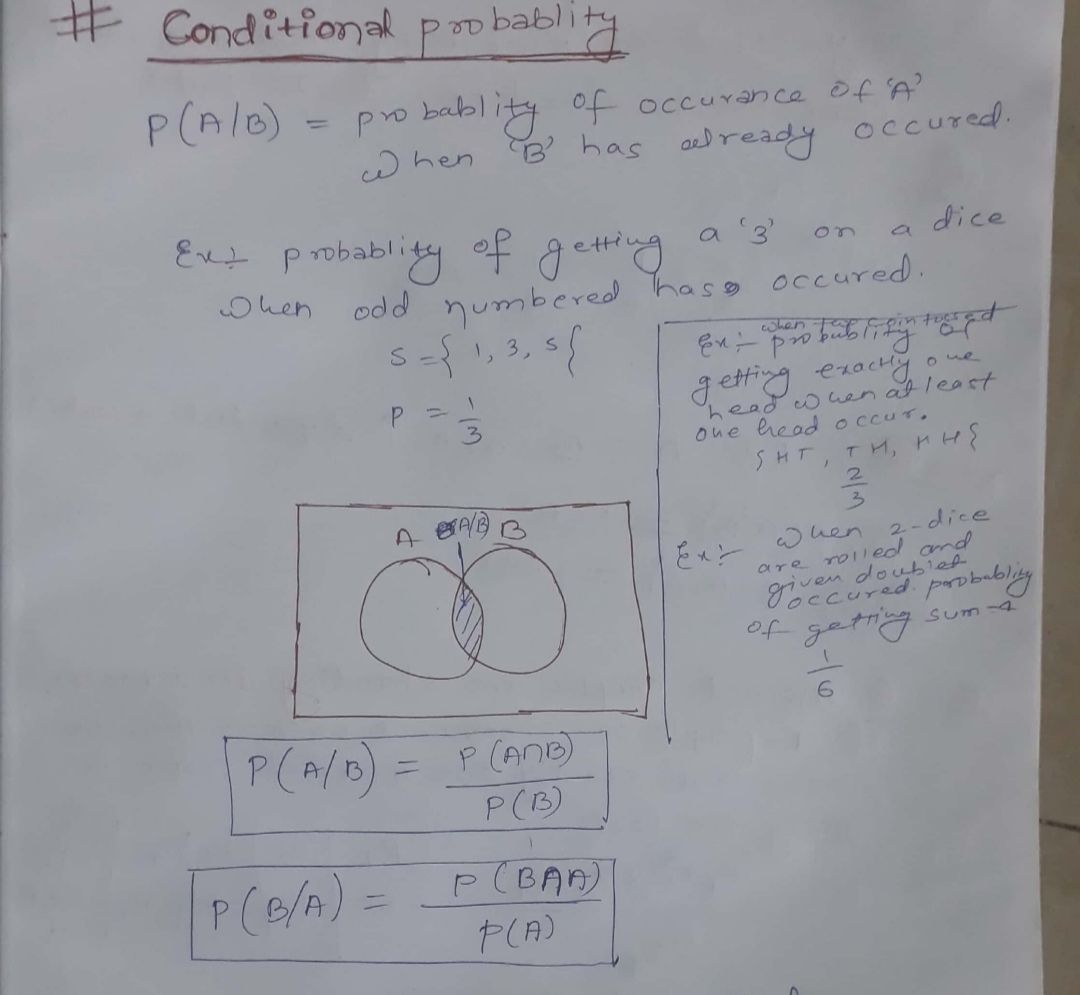 # Conditional probablity
P(A/B) = probablity of occurance of 'A'
when 'B' has already occured.
Ex:- probablity of getting a '3' on a dice
when odd numbered has occured.
S = { 1, 3, 5 {
P = 1/3
A (A/B) B
P(A/B) = P(A∩B) / P(B)
P(B/A) = P(BAA) / P(A)
when two coin tossed
Ex:- probublity of
getting exactly one
head when at least
one head occur.
{ HT, TH, HH {
2/3
Ex:- when 2-dice
are rolled and
given doublet
occured. probablity
of getting sum-4
1/6